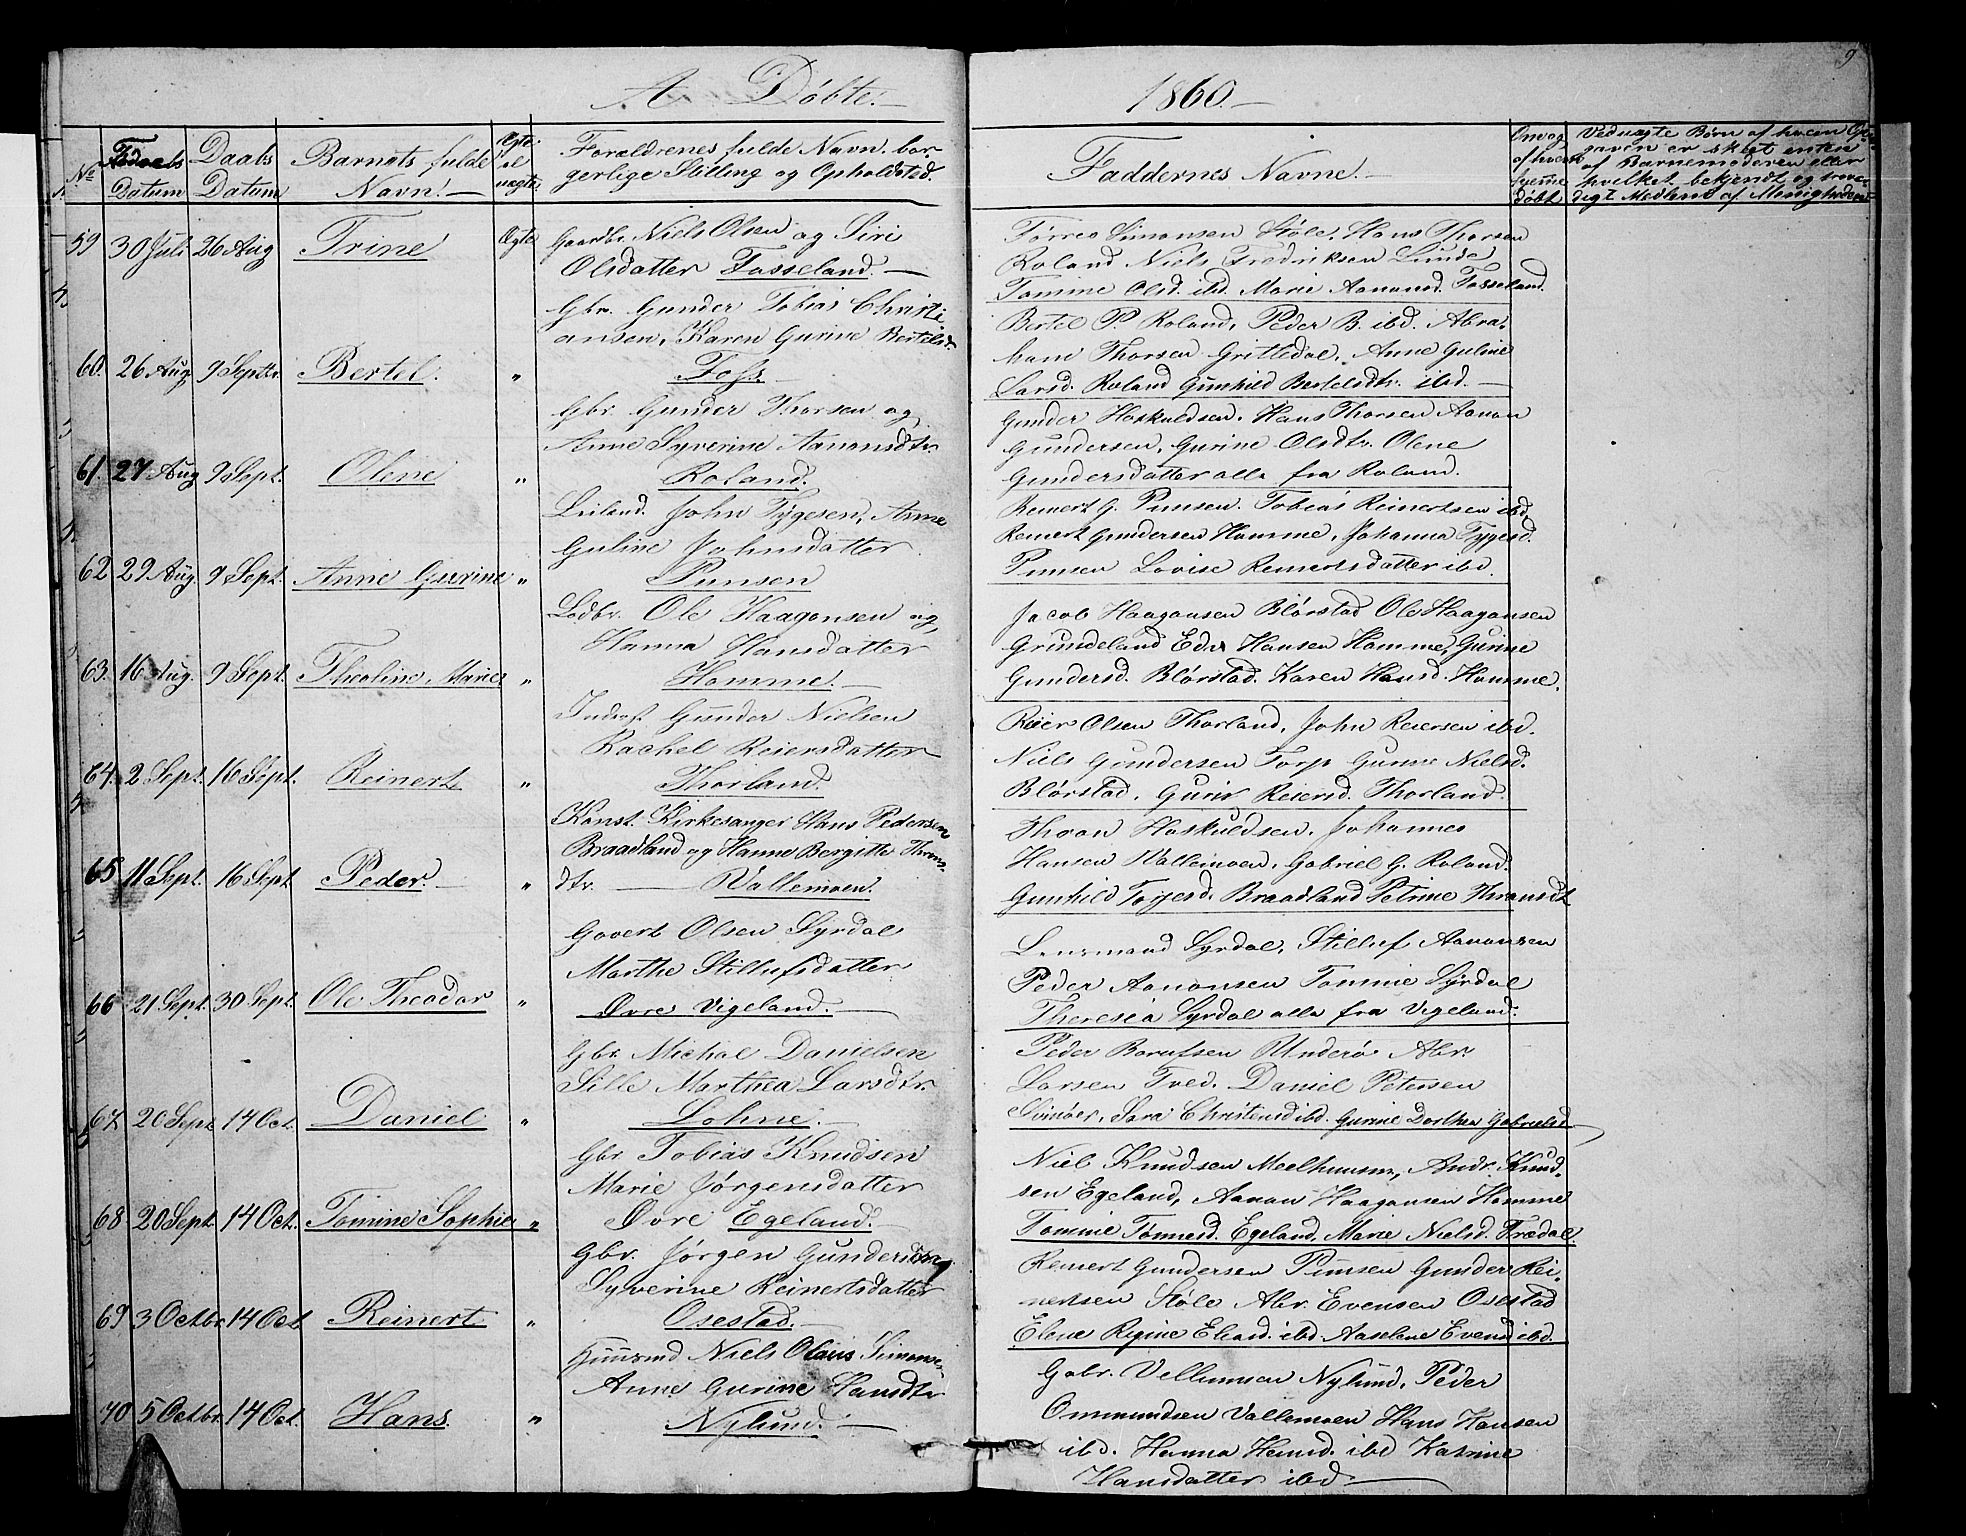 9
A Døbte.
1860.
No
Fødsels Datum
Daabs Datum
Barnets fulde Navn.
Ægte el uægte
Forældrenes fulde Navn, bor-
gerlige Stilling og Opholdsted.
Faddernes Navne.
Om og af hvem hjemme døbt
Ved uægte Børn af hvem Op-
gaven er skeet enten
af Barnemoderen eller
hvilket bekjendt og trovær-
digt Medlem af Menigheden
59 30 Juli 26 Aug Trine Ægte
Gaardbr. Niels Olsen og Siri
Olsdatter Fosseland.
Tørres Simonsen Støle, Hans Thorsen
Roland Niels Fredriksen Lunde
Tomine Olsd. ibd. Marie Aanonsd. Fosseland.
60. 26 Aug 9 Septbr. Bertel. "
Gbr. Gunder Tobias Christi-
ansen, Karen Gurine Bertelsd.
Foss.
Bertel P. Roland, Peder B. ibd. Abra-
ham Thorsen Gritledal, Anne Guline
Larsd. Roland Gunhild Bertelsdtr. ibd.
61. 27 Aug 9 Sept. Olene "
Gbr. Gunder Thorsen og
Anne Syverine Aanonsdtr.
Roland.
Gunder Hoskuldsen. Hans Thorsen Aanon
Gundersen, Gurine Olsdtr. Olene
Gundersdatter alle fra Roland.
62 29 Aug. 9 Sept. Anne Gurine "
Leiland. John Tygesen, Anne
Guline Johnsdatter
Punsen
Reinert G. Punsen. Tobias Reinertsen ibd.
Reinert Gundersen Homme, Johanna Tygesd.
Punsen Lovise Reinertsdatter ibd.
63. 16 Aug. 9 Sept. Theoline Marie "
Lodbr. Ole Haagensen og
Hanna Hansdatter
Homme.
Jacob Haagansen Blørstad Ole Haagansen
Grundeland Eder Hansen Homme, Gurine
Gundersd. Blørstad. Karen Hansd. Homme.
64. 2 Sept. 16 Sept. Reinert "
Inders. Gunder Nielsen
Rachel Reiersdatter
Thorland.
Reier Olsen Thorland, John Reiersen ibd.
Niels Gundersen Torp Gurine Nielsd.
Blørstad, Gurine Reiersd. Thorland.
65 11 Sept. 16 Sept Peder. "
Konst. Kirkesanger Hans Pedersen
Braadland og Hanne Bergitte Throns-
dtr. Vallemoen.
Thron Hoskuldsen, Johannes
Hansen Vallemoen, Gabriel G. Roland.
Gunhild Torjesd. Braadland Petrine Thronsdt
66 21 Sept. 30 Sept. Ole Theodor "
Govert Olsen Syrdal
Marthe Stillufsdatter
Øvre Vigeland.
Lensmand Syrdal, Stilluf Aanonsen
Peder Aanonsen Tomine Syrdal
Theresea Syrdal alle fra Vigeland.
67. 20 Sept 14 Oct. Daniel "
Gbr. Michal Danielsen
Sille Marthea Larsdtr.
Lohne.
Peder Berufsen Underø Abr.
Larsen Tved. Daniel Petersen
Svinøer, Sara Christensd ibd. Gurine Dorthea Gabrielsd.
68 20 Sept. 14 Oct. Tomine Sophie "
Gbr. Tobias Knudsen
Marie Jørgensdatter
Øvre Egeland.
Niel Knudsen Meelhuusm, Andr. Knud-
sen Egeland, Aanon Haagansen Homme
Tomine Tønnesd. Egeland, Marie Nielsd. Frædal.
69 3 Octbr. 14 Oct Reinert "
Gbr. Jørgen Gundersen
Syverine Reinertsdatter
Osestad.
Reinert Gundersen Punsen Gunder Rei-
nertsen Støle Abr. Evensen Osestad
Elene Regine Eliasd. ibd. Aaselene Evensd ibd.
70 5 Octbr. 14 Oct. Hans. "
Huusmd Niels Olaus Simonsen
Anne Gurine Hansdtr
Nylund.
Gabr. Vellumsen Nylund, Peder
Ommundsen Vallemoen Hans Hansen
ibd. Hanna Hansd. ibd Katrine
Hansdatter ibd.